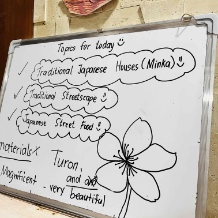 Topics for today
Traditional Japanese Houses (Minka)
Traditional Streetscape
Japanese Street Food
materials
Turon,
Magnificent and
- very beautiful